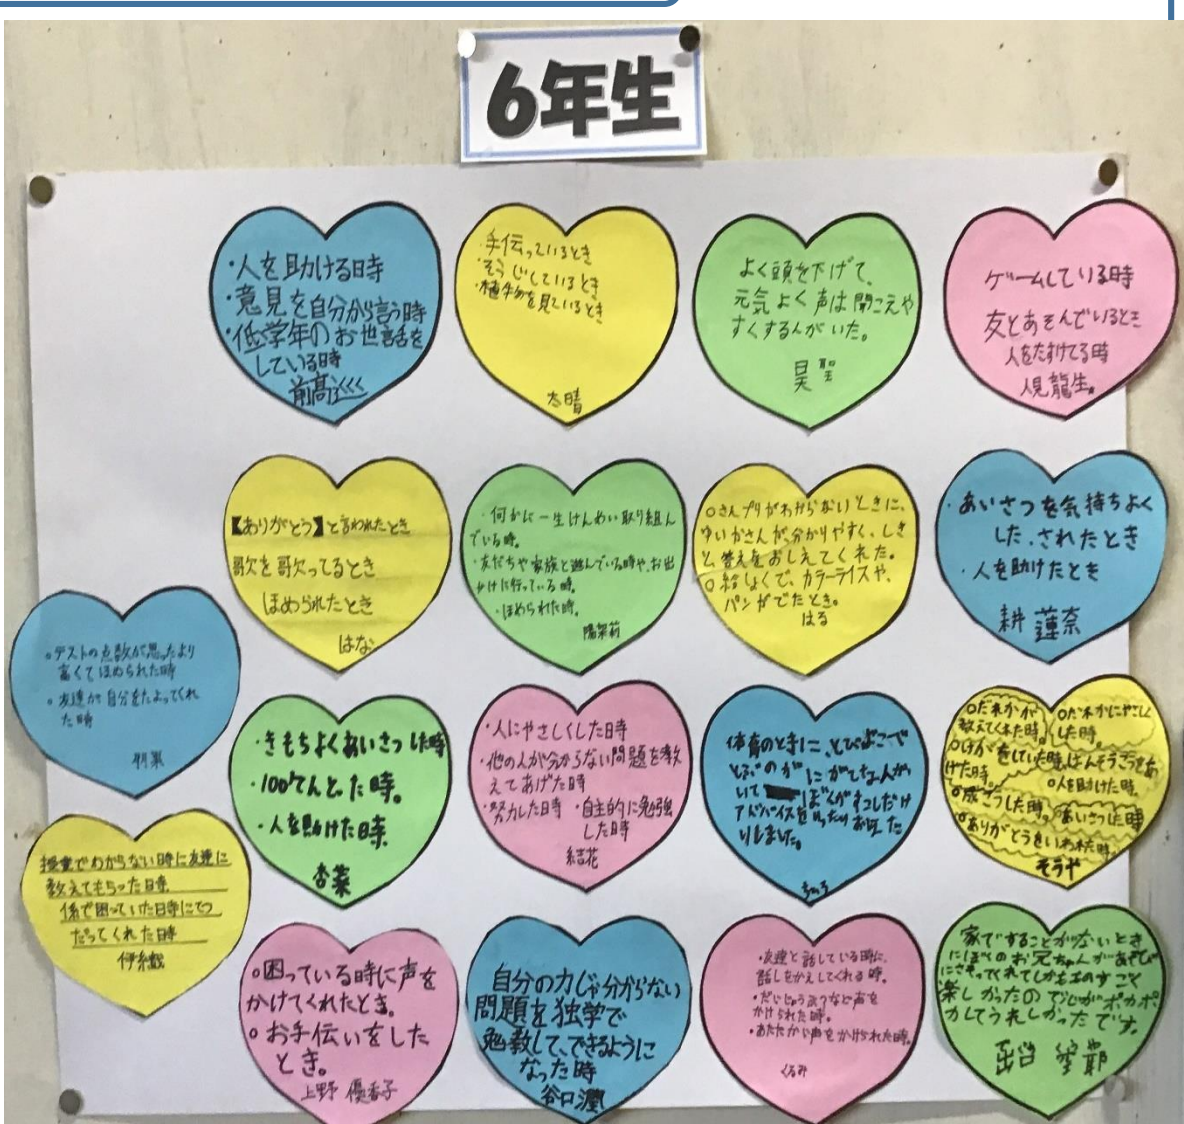 6年生
・人を助ける時
・意見を自分から言う時
・低学年のお世話を
している時
・手伝っているとき
・そうじしているとき
・植物を見ているとき
太晴
よく頭を下げて、
元気よく声は聞こえや
すくする人がいた。
ゲームしている時
友とあそんでいるとき
人をたすけてる時
人見龍生
【ありがとう】と言われたとき
歌を歌ってるとき
ほめられたとき
はな
・何かに一生けんめい取り組ん
でいる時。
・友だちや家族と遊んでいる時や、お出
かけに行っている時。
・ほめられた時。
○さんプリがわからないときに、
ゆいかさんが、分かりやすく、しき
と、答えをおしえてくれた。
○給しょくで、カラーライスや、
パンがでたとき。
はる
・あいさつを気持ちよく
した、されたとき
・人を助けたとき
耕 蓮奈
○テストの点数が思ったより
高くてほめられた時
○友達が自分をたよってくれ
た時
・きもちよくあいさつした時
・100てんとった時。
・人を助けた時
杏菜
・人にやさしくした時
・他の人が分からない問題を教
えてあげた時
・努力した時 ・自主的に勉強
した時
結花
体育のときに、とびばこで
とぶのが にがてな人が
いて ぼくがすこしだけ
アドバイスを
りしました。
○だれかが
教えてくれた時。
○だれかにやさしく
した時。
○けがをしていた時、ばんそうこうをあ
げた時。
○人を助けた時。
○成こうした時。
○あいさつした時
○ありがとうをいわれた時。
そうや
授業でわからない時に友達に
教えてもらった時
係で困っていた時にてつ
だってくれた時
伊織
○困っている時に声を
かけてくれたとき。
○お手伝いをした
とき。
上野 優香子
自分の力じゃ分からない
問題を独学で
勉教して、できるように
なった時
谷口潤
・友達と話している時に、
話しをかえしてくれる時。
・だいじょうぶなど声を
かけられた時。
・あたたかい声をかけられた時。
くるみ
家ですることがないとき
にぼくのお兄ちゃんがあそび
にさそってくれてしかもものすごく
楽しかったので心がポカポ
カしてうれしかったです。